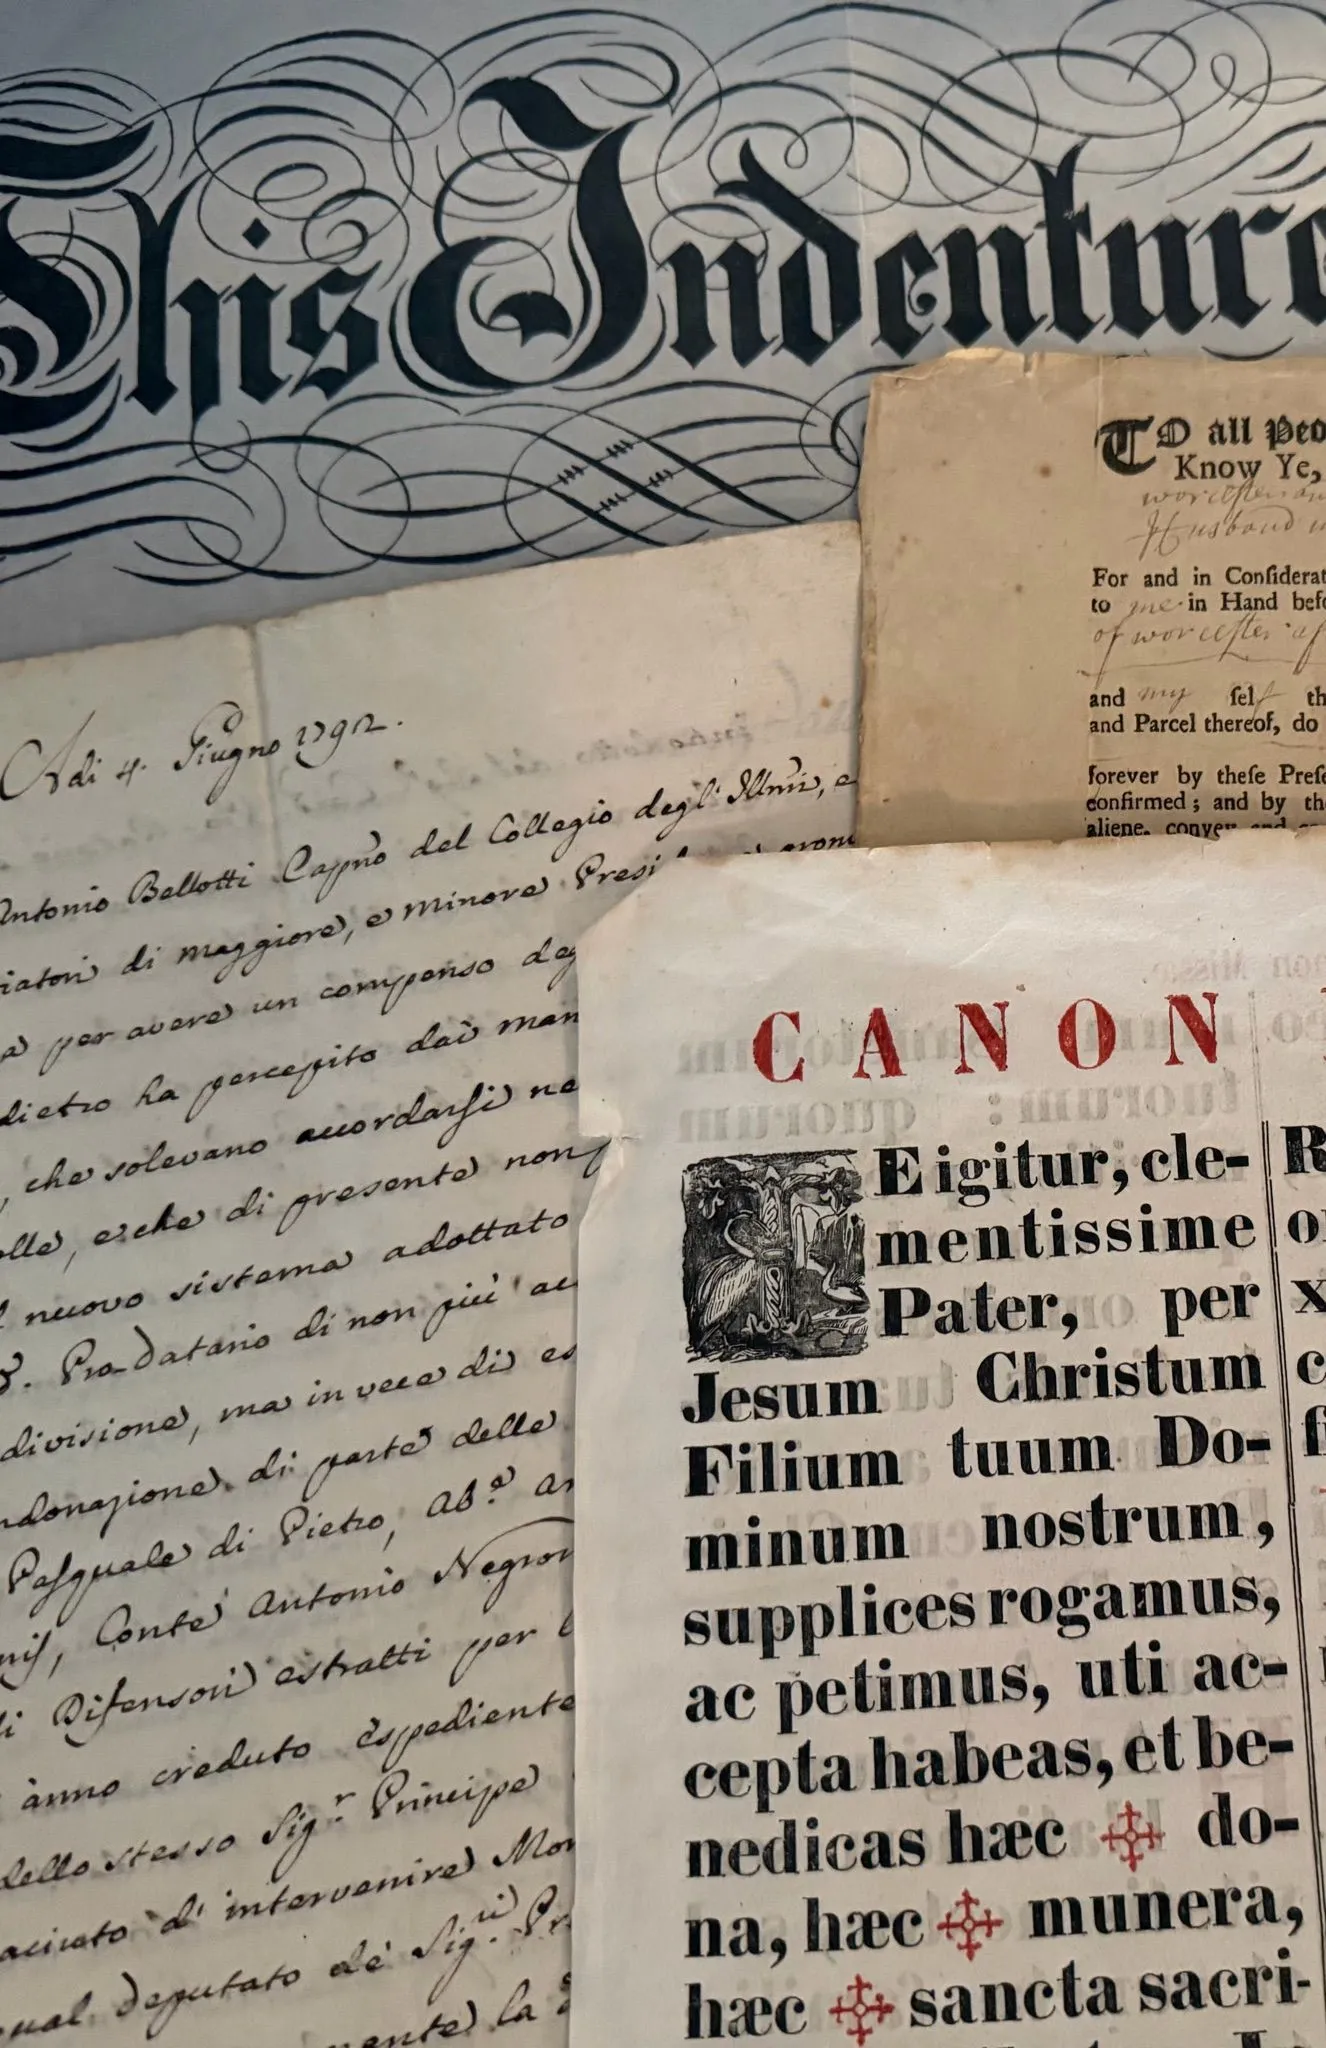 This Indenture
TO all Peo
Know Ye,
worcester an
Husband
For and in Conſiderat
to me in Hand befo
of worceſter
and my ſelf th
and Parcel thereof, do
forever by theſe Preſe
confirmed; and by th
aliene, convey and
Adi 4. Giugno 1792.
Antonio Bellotti Capño del Collegio degl' Illmi, e
di maggiore, e minore Presi
a per avere un compenso deg
dietro ha percepito dai man
, che solevano accordarsi ne
olle, e che di presente non
nuovo sistema adottato
Pro-Datario di non più ac
divisione, ma in vece di es
di parte delle
Pasquale di Pietro, Ab.e An
Conte Antonio Negron
Difensori estratti per
anno creduto espediente
dello stesso Sig.r Principe
d' intervenire Mon
deputato de' Sig.ri Pr
la
CANON
TE igitur, cle-
mentissime
Pater, per
Jesum Christum
Filium tuum Do-
minum nostrum,
supplices rogamus,
ac petimus, uti ac-
cepta habeas, et be-
nedicas hæc ✠ do-
na, hæc ✠ munera,
hæc ✠ sancta sacri-
R
x
c